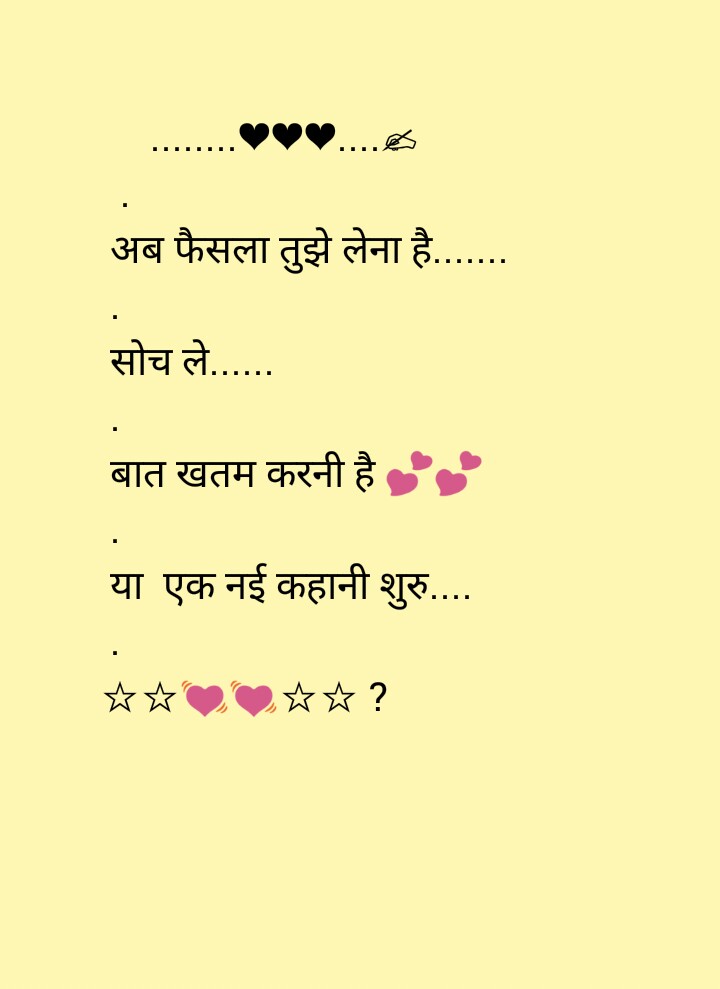 ........♥♥♥....✍
.
अब फैसला तुझे लेना है.......
.
सोच ले......
.
बात खतम करनी है 💕💕
.
या  एक नई कहानी शुरु....
.
☆☆💓💓☆☆ ?